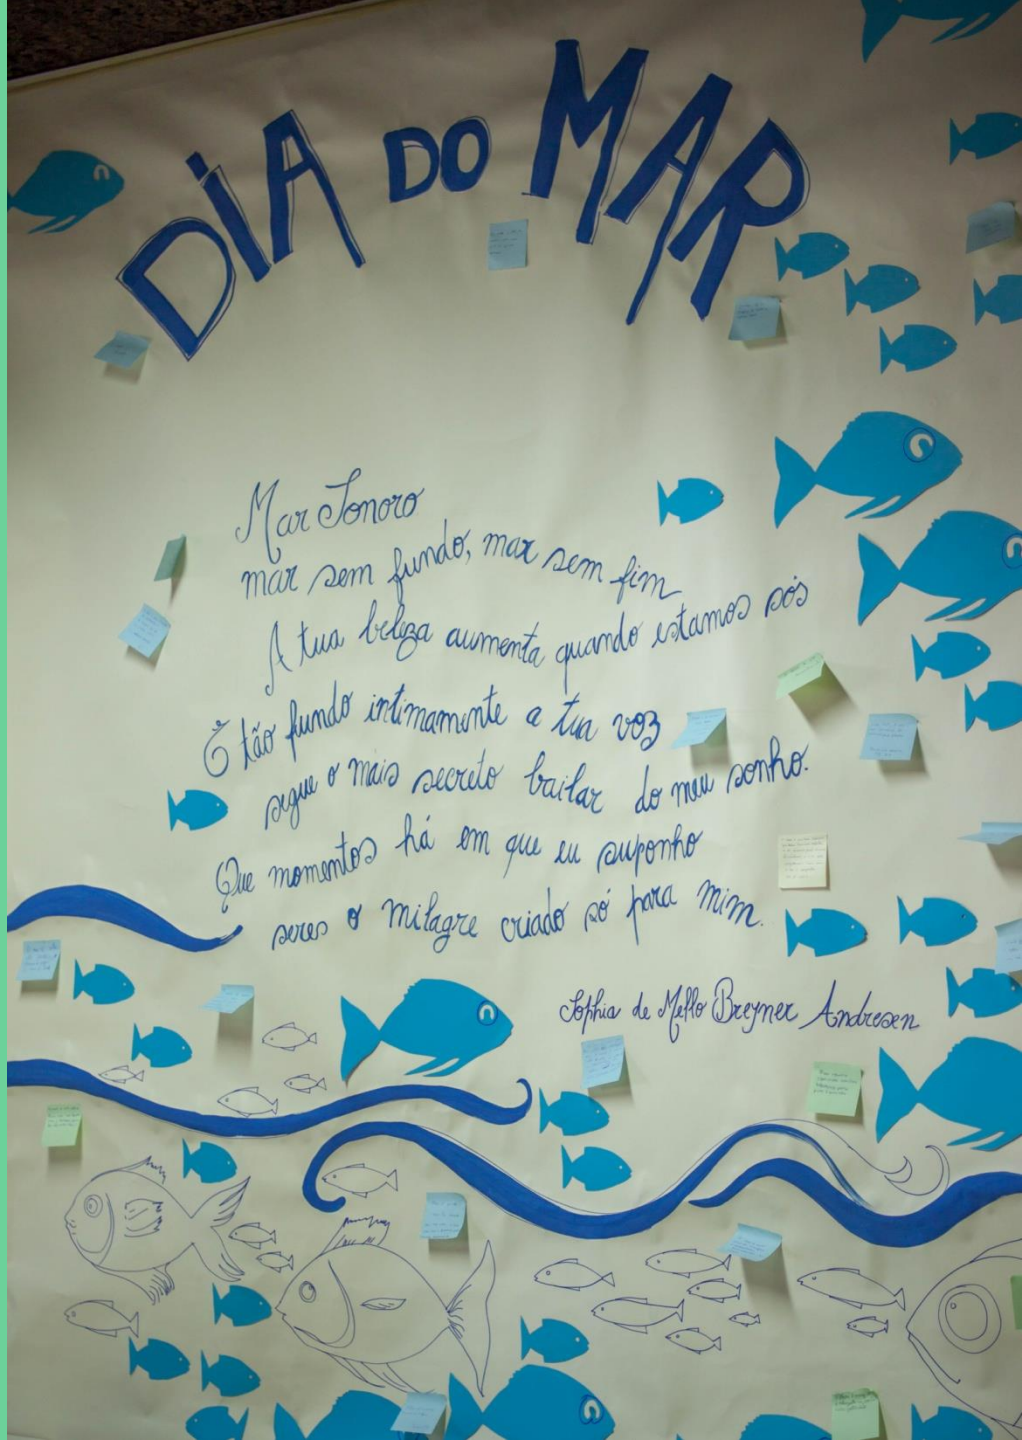 DIA DO MAR
Mar Sonoro
mar sem fundo, mar sem fim
A tua beleza aumenta quando estamos sós
E tão fundo intimamente a tua voz
segue o mais secreto bailar do meu sonho.
Que momentos há em que eu suponho
seres o milagre criado só para mim.
Sophia de Mello Breyner Andresen